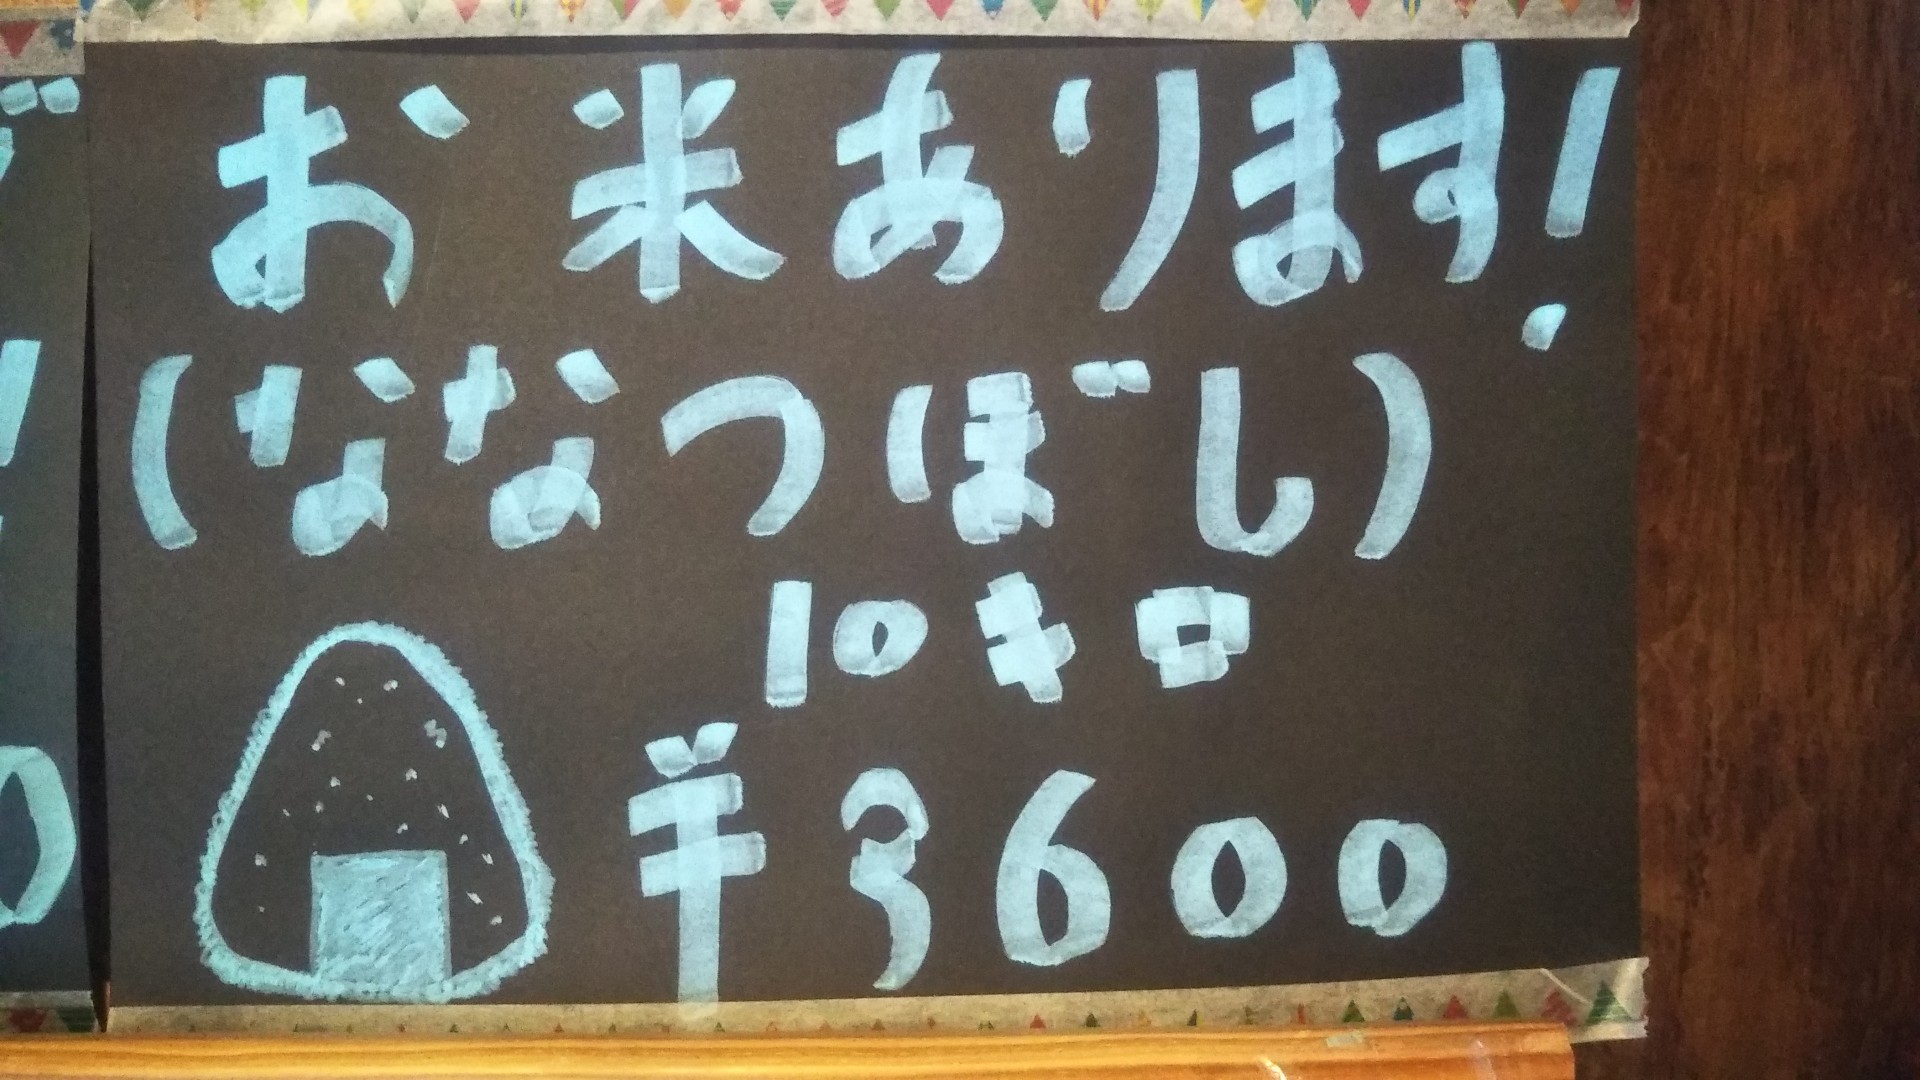 お米あります!
(ななつぼし)
10キロ
¥3600